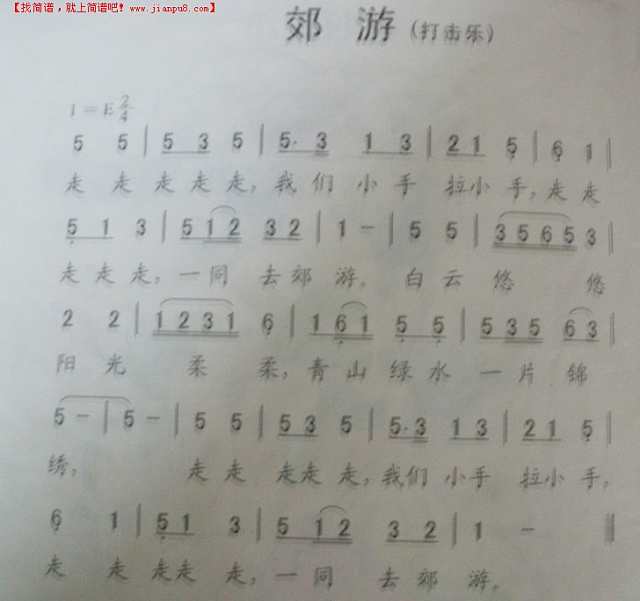 【找简谱，就上简谱吧！www.jianpu8.com】
郊 游 (打击乐)
1=E 2/4
5 5 | 5 3 5 | 5· 3 1 3 | 2 1 5 | 6 1 |
走 走 走 走 走，我 们 小 手 拉 小 手，走 走
5 1 3 | 5 1 2 3 2 | 1 - | 5 5 | 3 5 6 5 3 |
走 走 走，一 同 去 郊 游。白 云 悠 悠
2 2 | 1 2 3 1 6 | 1 6 1 5 5 | 5 3 5 6 3 |
阳 光 柔 柔，青 山 绿 水 一 片 锦
5 - | 5 - | 5 5 | 5 3 5 | 5· 3 1 3 | 2 1 5 |
绣。 走 走 走 走 走，我 们 小 手 拉 小 手，
6 1 | 5 1 3 | 5 1 2 3 2 | 1 - ‖
走 走 走 走 走，一 同 去 郊 游。